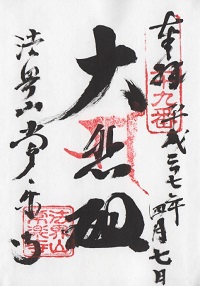 奉拝 平成二十七年四月七日
第九番
大悲殿
法界山 常楽寺
法界山常楽寺